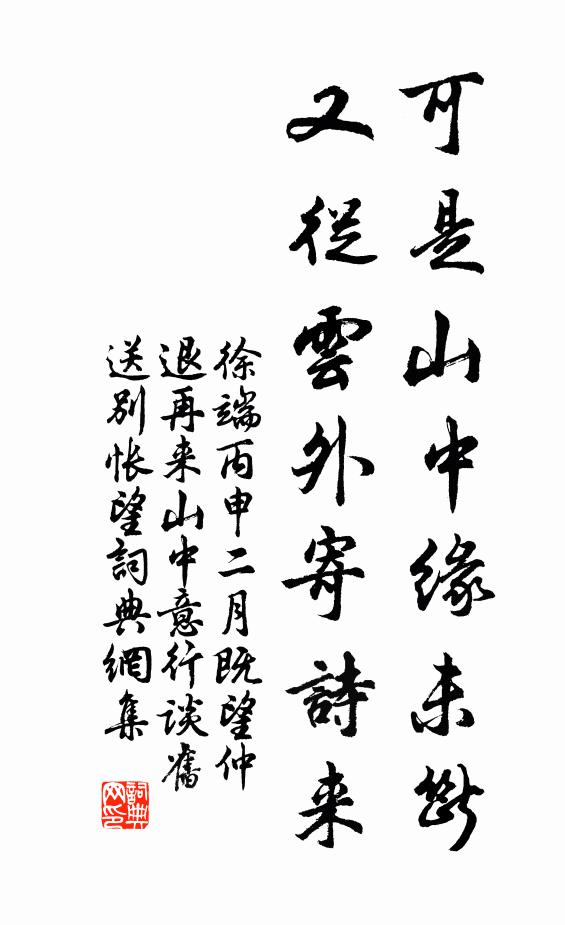 可是山中緣未斷
又從雲外寄詩来
徐端丙申二月既望仲
退再来山中意行談舊
送別悵望詞典網集
詞典网印